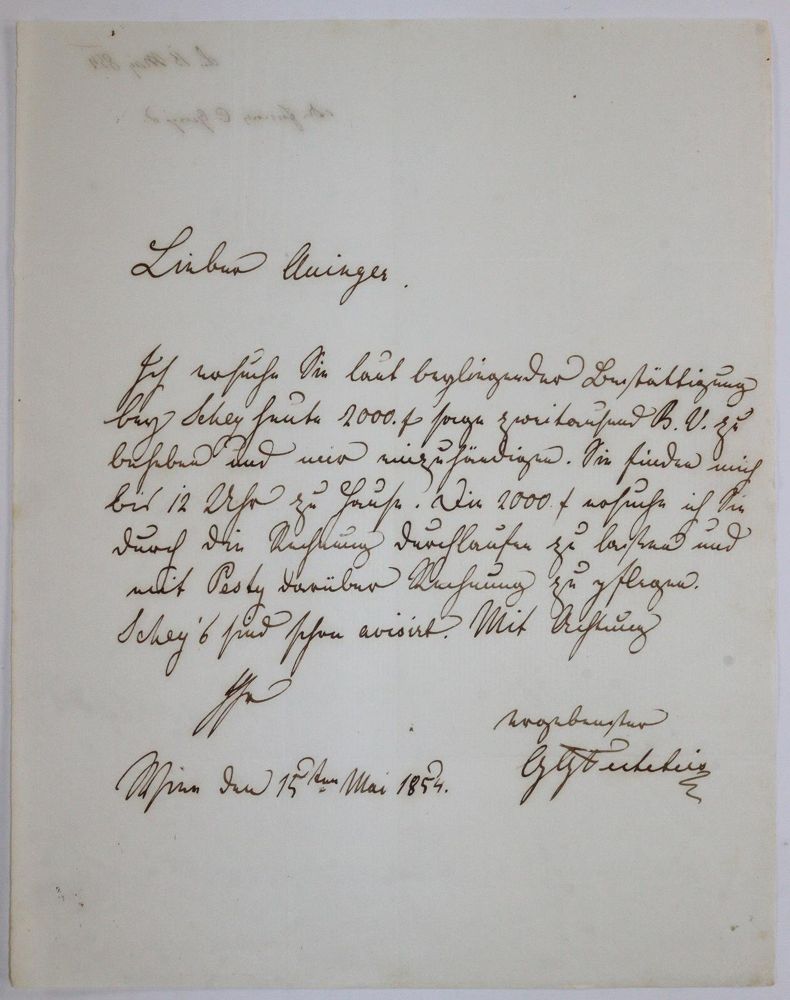 Lieber Auinger.
Ich ersuche Sie laut beyliegender Bestättigung
bey Schey heute 2000.f sage zweitausend B. V. zu
beheben und mir einzuhändigen. Sie finden mich
bis 12 Uhr zu Hause. Die 2000 f ersuche ich Sie
durch die Rechnung durchlaufen zu lassen und
mit Pesty darüber Rechnung zu pflegen.
Schey's sind schon avisirt. Mit Achtung
Ihr
ergebenster
Wien den 15ten Mai 1854.